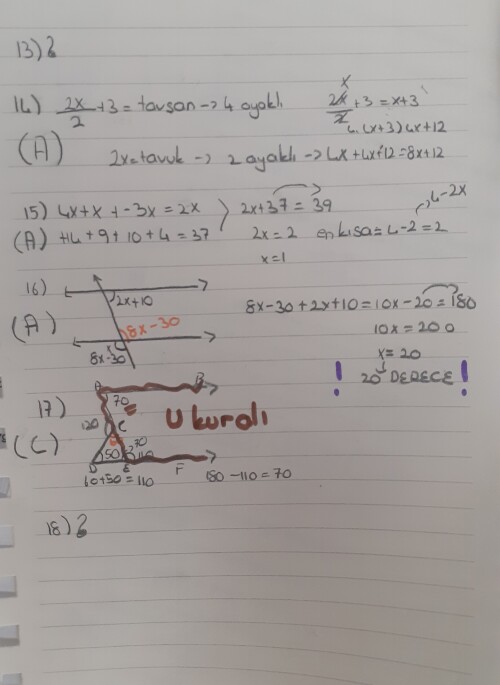 13) 2
14) 2x/2 +3 = tavşan -> 4 ayaklı
x
2x/2 +3 = x+3
4.(x+3) 4x+12
(A) 2x=tavuk -> 2 ayaklı -> 4x+4x+12=8x+12
15) 4x+x+-3x=2x
2x+37=39
4-2x
(A) +14+9+10+4=37
2x=2 en kısa=4-2=2
x=1
16)
2x+10
8x-30+2x+10=10x-20=180
(A)
8x-30
10x=200
8x-30
x=20
! 20 DERECE !
17)
A B
70
120 C
U kuralı
(C)
50 70 110
D E F
60+50=110
180-110=70
18) 2